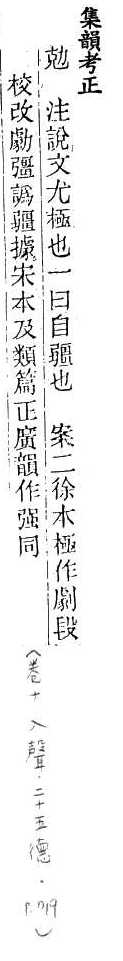 集韻考正
勊　注說文尤極也一曰自疆也　案二徐本極作劇段
校改勮彊譌疆據宋本及類篇正廣韻作强同
(卷十入聲·二十五德·P.719)